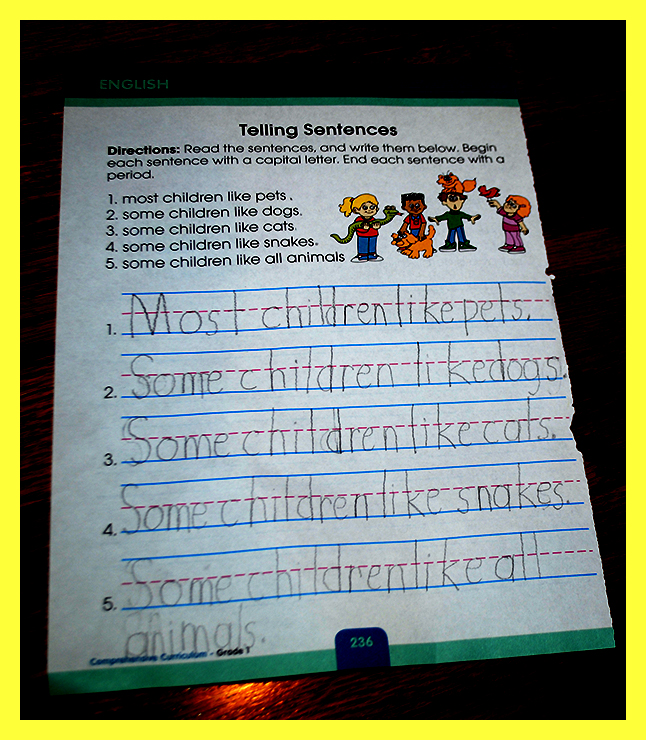 ENGLISH
Telling Sentences
Directions: Read the sentences, and write them below. Begin
each sentence with a capital letter. End each sentence with a
period.
1. most children like pets .
2. some children like dogs.
3. some children like cats.
4. some children like snakes.
5. some children like all animals
1. Most children like pets.
2. Some children like dogs.
3. Some children like cats.
4. Some children like snakes.
5. Some children like all
animals.
Comprehensive Curriculum - Grade 1
236